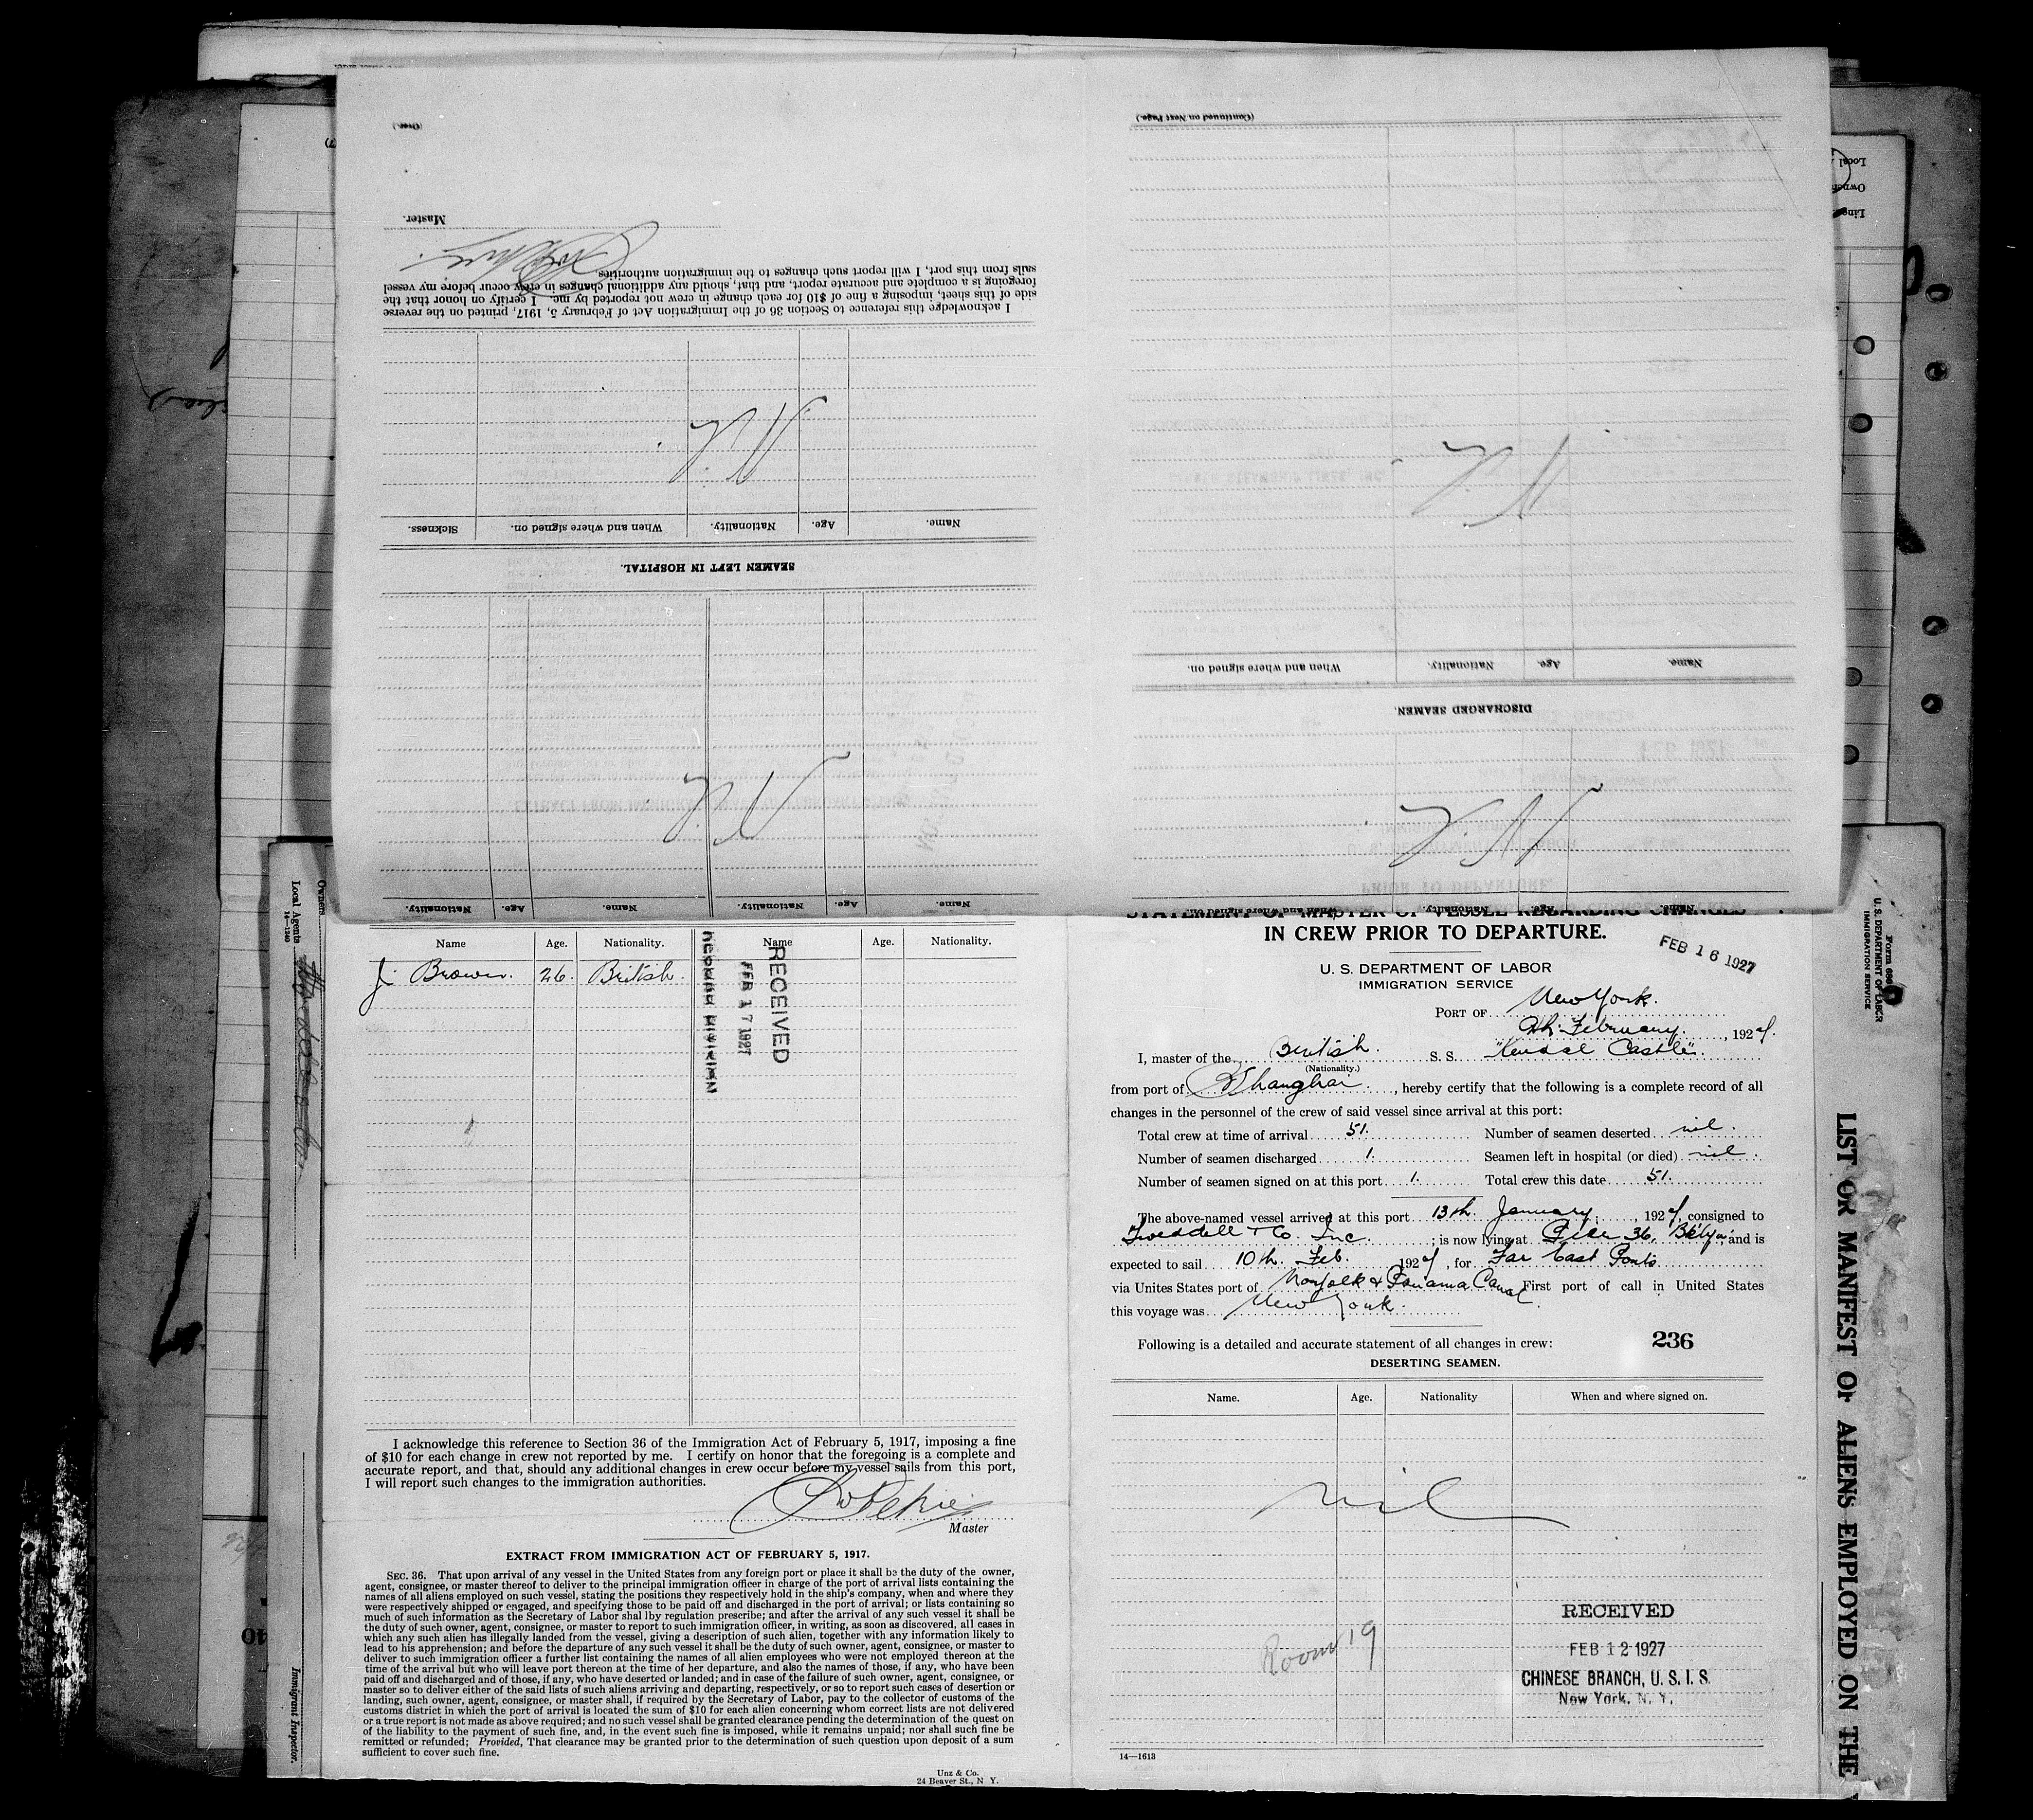 (Over.)
Master.
I acknowledge this reference to Section 36 of the Immigration Act of February 5, 1917, printed on the reverse
side of this sheet, imposing a fine of $10 for each change in crew not reported by me. I certify on honor that the
foregoing is a complete and accurate report, and that, should any additional changes in crew occur before my vessel
sails from this port, I will report such changes to the immigration authorities.
SEAMEN LEFT IN HOSPITAL.
Name. Age. Nationality. When and where signed on. Sickness.
Nil
Name. Age. Nationality. Name. Age. Nationality.
Nil
(Continued on Next Page.)
DISCHARGED SEAMEN.
Name. Age. Nationality. When and where signed on.
Nil
Name. Age. Nationality. When and where signed on.
Nil
Local
Owners
Line
Owners
Local Agents
14—1240
Immigrant Inspector.
Name Age. Nationality. Name Age. Nationality.
J. Brown. 26. British.
RECEIVED
FEB 17 1927
I acknowledge this reference to Section 36 of the Immigration Act of February 5, 1917, imposing a fine
of $10 for each change in crew not reported by me. I certify on honor that the foregoing is a complete and
accurate report, and that, should any additional changes in crew occur before my vessel sails from this port,
I will report such changes to the immigration authorities.
Master
EXTRACT FROM IMMIGRATION ACT OF FEBRUARY 5, 1917.
SEC. 36. That upon arrival of any vessel in the United States from any foreign port or place it shall be the duty of the owner,
agent, consignee, or master thereof to deliver to the principal immigration officer in charge of the port of arrival lists containing the
names of all aliens employed on such vessel, stating the positions they respectively hold in the ship's company, when and where they
were respectively shipped or engaged, and specifying those to be paid off and discharged in the port of arrival; or lists containing so
much of such information as the Secretary of Labor shal lby regulation prescribe; and after the arrival of any such vessel it shall be
the duty of such owner, agent, consignee, or master to report to such immigration officer, in writing, as soon as discovered, all cases in
which any such alien has illegally landed from the vessel, giving a description of such alien, together with any information likely to
lead to his apprehension; and before the departure of any such vessel it shall be the duty of such owner, agent, consignee, or master to
deliver to such immigration officer a further list containing the names of all alien employees who were not employed thereon at the
time of the arrival but who will leave port thereon at the time of her departure, and also the names of those, if any, who have been
paid off and discharged and of those, if any, who have deserted or landed; and in case of the failure of such owner, agent, consignee, or
master so to deliver either of the said lists of such aliens arriving and departing, respectively, or so to report such cases of desertion or
landing, such owner, agent, consignee, or master shall, if required by the Secretary of Labor, pay to the collector of customs of the
customs district in which the port of arrival is located the sum of $10 for each alien concerning whom correct lists are not delivered
or a true report is not made as above required; and no such vessel shall be granted clearance pending the determination of the quest on
of the liability to the payment of such fine, and, in the event such fine is imposed, while it remains unpaid; nor shall such fine be
remitted or refunded; Provided, That clearance may be granted prior to the determination of such question upon deposit of a sum
sufficient to cover such fine.
Unz & Co.
24 Beaver St., N Y.
STATEMENT OF MASTER OF VESSEL REGARDING CHANGES
IN CREW PRIOR TO DEPARTURE.
FEB 16 1927
U. S. DEPARTMENT OF LABOR
IMMIGRATION SERVICE
PORT OF New York.
9th February, 1927.
I, master of the British. S. S. "Kendal Castle".
(Nationality.)
from port of Shanghai, hereby certify that the following is a complete record of all
changes in the personnel of the crew of said vessel since arrival at this port:
Total crew at time of arrival 51. Number of seamen deserted nil.
Number of seamen discharged 1. Seamen left in hospital (or died) nil.
Number of seamen signed on at this port 1. Total crew this date 51.
The above-named vessel arrived at this port 13th January, 1927, consigned to
Tweddell & Co. Inc.; is now lying at Pier 36, Bklyn and is
expected to sail 10th. Feb. 1927, for Far East Ports
via Unites States port of Norfolk & Panama Canal First port of call in United States
this voyage was New York.
Following is a detailed and accurate statement of all changes in crew: 236
DESERTING SEAMEN.
Name. Age. Nationality When and where signed on.
nil
Room 19
RECEIVED
FEB 12 1927
CHINESE BRANCH, U. S. I. S.
New York, N. Y.
14—1613
Form 680
U. S. DEPARTMENT OF LABOR
IMMIGRATION SERVICE
LIST OR MANIFEST OF ALIENS EMPLOYED ON THE